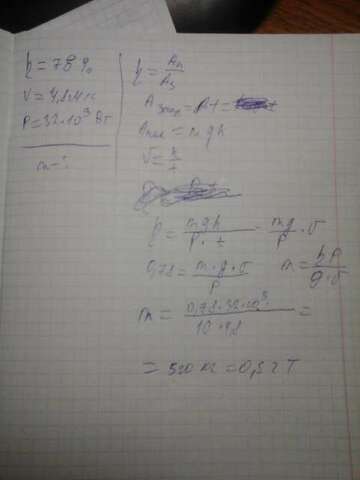 η = 78%
V = 4,8 м/с
P = 32·10³ Вт
m - ?
η = Aп / Aз
Aзат = Pt =
Aпол = mgh
v = h / t
η = mgh / P·t = mg / P · v
0,78 = m·g·v / P m = ηP / g·v
m = 0,78·32·10³ / 10·4,8 =
= 520 кг = 0,52 т